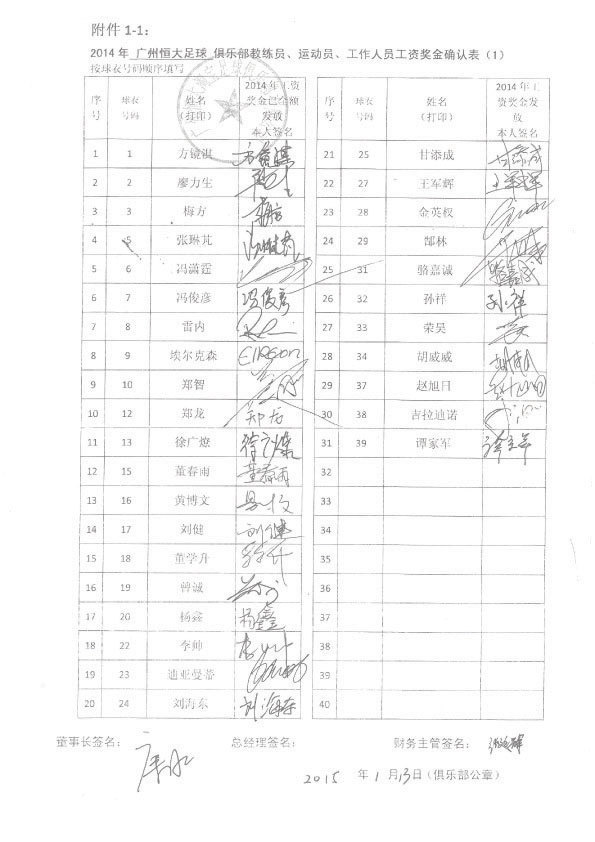 附件 1-1：
2014 年 广州恒大足球 俱乐部教练员、运动员、工作人员工资奖金确认表（1）
按球衣号码顺序填写
序号 球衣号码 姓名（打印） 2014 年工资奖金已全额发放本人签名 序号 球衣号码 姓名（打印） 2014 年工资奖金发放本人签名
1 1 方镜淇 方镜淇 21 25 甘添成 甘添成
2 2 廖力生 22 27 王军辉 王军辉
3 3 梅方 梅方 23 28 金英权
4 5 张琳芃 张琳芃 24 29 郜林
5 6 冯潇霆 25 31 骆嘉诚 骆嘉诚
6 7 冯俊彦 冯俊彦 26 32 孙祥 孙祥
7 8 雷内 27 33 荣昊
8 9 埃尔克森 ElKeson 28 34 胡威威
9 10 郑智 29 37 赵旭日 赵旭日
10 12 郑龙 郑龙 30 38 吉拉迪诺
11 13 徐广燎 徐广燎 31 39 谭家军
12 15 董春雨 董春雨 32
13 16 黄博文 33
14 17 刘健 刘健 34
15 18 董学升 35
16 19 曾诚 36
17 20 杨鑫 杨鑫 37
18 22 李帅 38
19 23 迪亚曼蒂 39
20 24 刘海东 刘海东 40
董事长签名： 总经理签名： 财务主管签名：
2015 年 1 月 13 日（俱乐部公章）